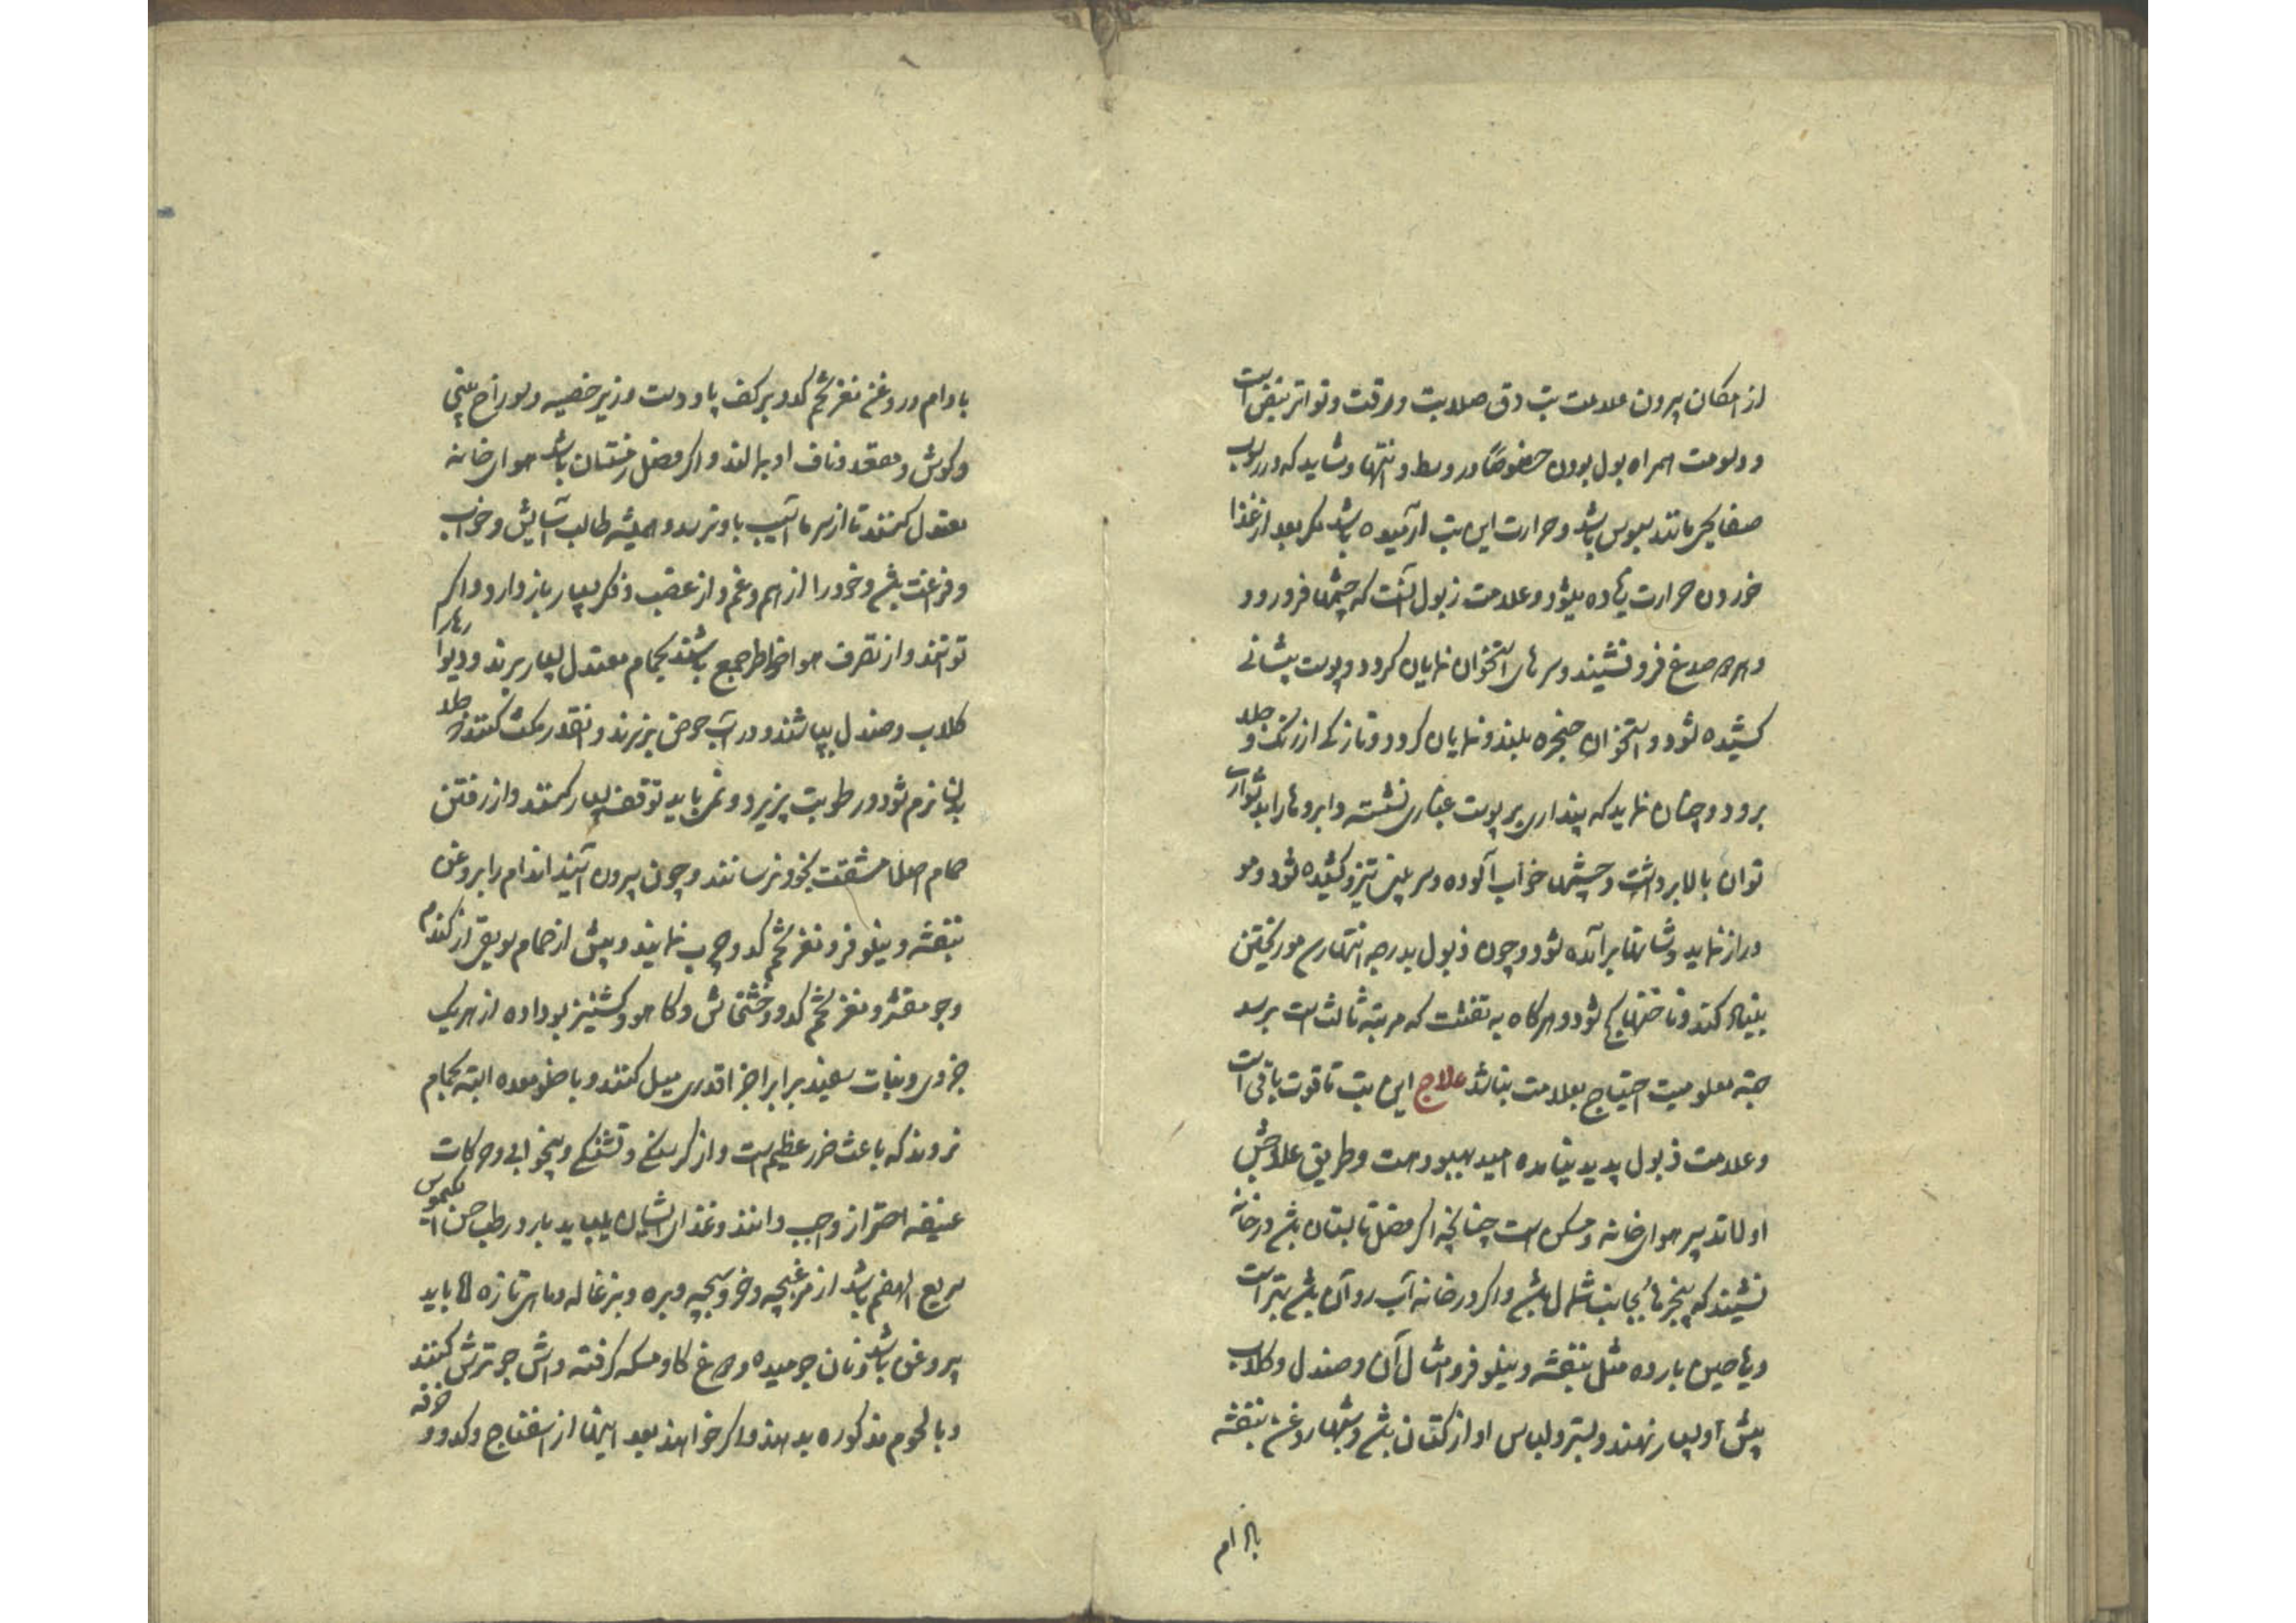 از امکان بیرون علامت تب دق صلابت و دقت و تواتر نبض است
و دسومت همراه بول بودن خصوصًا در وسط و انتها و شاید که در رسوب
صفایحی مانند سبوس باشد و حرارت این تب آرمیده باشد مکر بعد از غذا
خوردن حرارت زیاده میشود و علامت زبول آنست که چشمها فرو رود
و هر دو صدغ فرو نشیند و سرهای استخوان نمایان کردد و پوست پیشانی
کشیده شود و استخوان حنجره بلند و نمایان کردد و تازکی از رنک و جلد
برود و چنان نماید که پنداری بر پوست غباری نشسته و ابروها را بدشواری
توان بالا برداشت و چشمها خواب آلوده و سر بینی تیز و کشیده شود و مو
دراز نماید و شانها برآمده شود و چون ذبول بدرجه انتها رسد مو ریختن
بنیاد کند و ناخنها کج شود و هرکاه به تفتت که مرتبه ثالث است برسد
جهة معلومیت احتیاج بعلامت نباشد علاج این تب تا قوت باقی است
و علامت ذبول پدید نیامده امید بهبود هست و طریق علاجش
اولا تدبیر هوای خانه و مسکن است چنانچه اکر فصل تابستان باشد در خانه
نشیند که پنجرها بجانب شمال باشد و اکر در خانه آب روان باشد بهتر است
و ریاحین بارده مثل بنفشه و نیلوفر و امثال آن و صندل و کلاب
پیش او بسیار نهند و بستر و لباس او از کتان باشد و شبها روغن بنفشه
بادام
بادام و روغن مغز تخم کدو بر کف پا و دست و زیر خصیه و سوراخ بینی
و کوش و مقعد و ناف او بمالند و اکر فصل زمستان باشد هوای خانه
معتدل کنند تا از سرما آسیب باو نرسد و همیشه طالب آسایش و خواب
و فراغت باشد و خود را از هم و غم و از غضب و فکر بسیار باز دارد و اکر
توانند و از تصرف هوا خاطر جمع باشند بحمام معتدل بسیار برند و دیوارها را
کلاب و صندل بپاشند و در آب حوض بنزیرند و آنقدر مکث کنند که جلد
بدن نرم شود و رطوبت پزیرد و نمی باید توقف بسیار کنند و از رفتن
حمام اصلا مشقت بخود نرسانند و چون بیرون آیند اندام را بروغن
بنفشه و نیلوفر و مغز تخم کدو چرب نمایند و پیش از حمام سویق از کندم
و جو مقشر و مغز تخم کدو و خشخاش و کاهو و کشنیز بو داده از هر یک
جزوی و نبات سفید برابر اجزا قدری میل کنند و با خلو معده البته بحمام
نروند که باعث ضرر عظیم است و از کرسنکی و تشنکی و بیخوابی و حرکات
عنیفه احتراز واجب دانند و غذای ایشان میباید بارد رطب حسن الکیموس
سریع الهضم باشد از مرغبچه و خروسبچه و بره و بزغاله و ماهی تازه اما باید
پر روغن باشد و نان جو میده و دوغ کاو مسکه کرفته و آش جو ترش کنند
و با لحوم مذکوره بدهند و اکر خواهند بعد اینها از اسفناج و کدو و خرفه